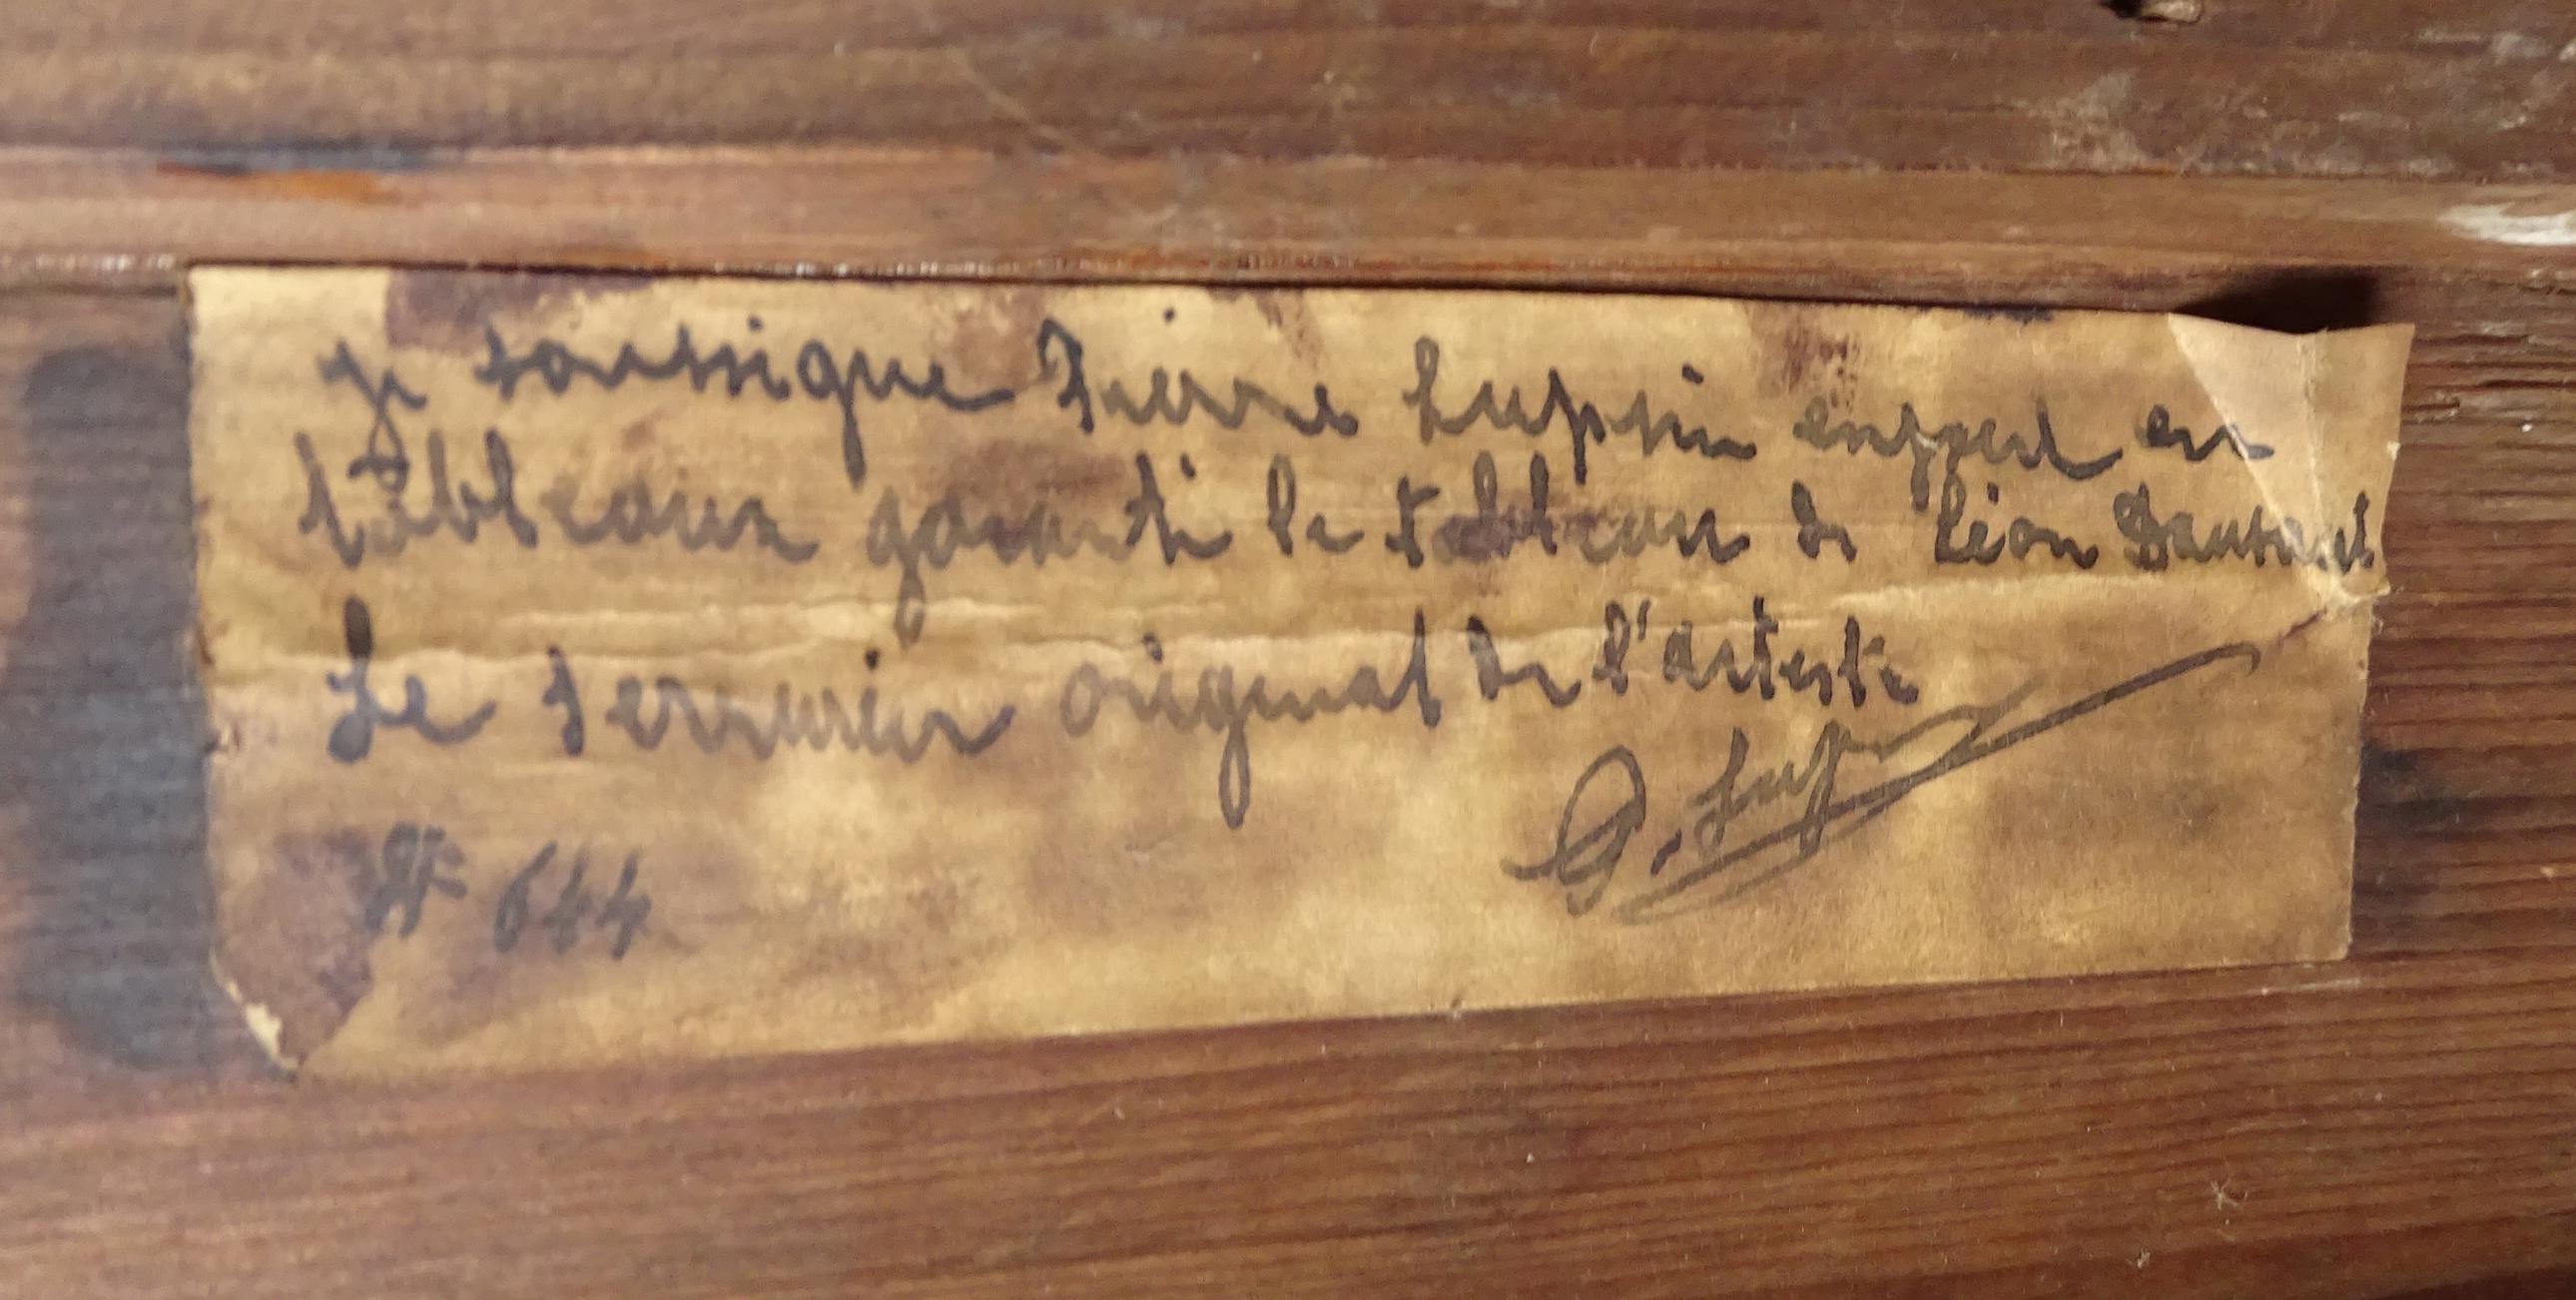 je soussigne Pierre Luppin expert en
tableaux garanti le tableau de Léon
Le Serrurier original de l'artiste
P. Lup
N° 644